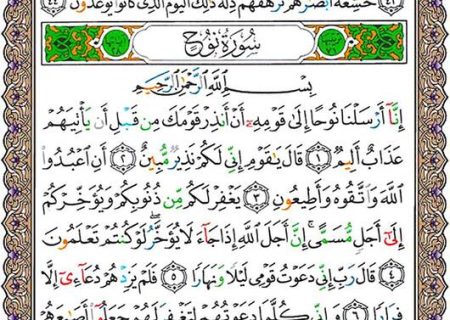 خَٰشِعَةً أَبْصَٰرُهُمْ تَرْهَقُهُمْ ذِلَّةٌ ذَٰلِكَ ٱلْيَوْمُ ٱلَّذِى كَانُوا۟ يُوعَدُونَ ٤٤
سُورَةُ نُوحٍ
بِسْمِ ٱللَّهِ ٱلرَّحْمَٰنِ ٱلرَّحِيمِ
إِنَّآ أَرْسَلْنَا نُوحًا إِلَىٰ قَوْمِهِۦٓ أَنْ أَنذِرْ قَوْمَكَ مِن قَبْلِ أَن يَأْتِيَهُمْ
عَذَابٌ أَلِيمٌ ١ قَالَ يَٰقَوْمِ إِنِّى لَكُمْ نَذِيرٌ مُّبِينٌ ٢ أَنِ ٱعْبُدُوا۟
ٱللَّهَ وَٱتَّقُوهُ وَأَطِيعُونِ ٣ يَغْفِرْ لَكُم مِّن ذُنُوبِكُمْ وَيُؤَخِّرْكُمْ
إِلَىٰٓ أَجَلٍ مُّسَمًّى ۚ إِنَّ أَجَلَ ٱللَّهِ إِذَا جَآءَ لَا يُؤَخَّرُ ۖ لَوْ كُنتُمْ تَعْلَمُونَ
٤ قَالَ رَبِّ إِنِّى دَعَوْتُ قَوْمِى لَيْلًا وَنَهَارًا ٥ فَلَمْ يَزِدْهُمْ دُعَآءِىٓ إِلَّا
فِرَارًا ٦ وَإِنِّى كُلَّمَا دَعَوْتُهُمْ لِتَغْفِرَ لَهُمْ جَعَلُوٓا۟ أَصَٰبِعَهُمْ